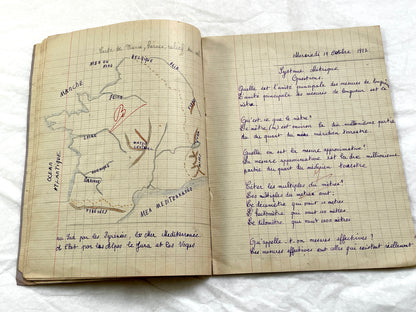 Carte de
MER DU
NORD
BELGIQUE
MANCHE
SEINE
LOIRE
OCEAN
ATLANTIQUE
GARONNE
PYRENEES
MER MEDITERRANEE
au Sud par les Pyrénées, la mer Mediterranée
à l'Est par les Alpes le Jura et les Vosges
Mercredi 19 Octobre
Système métrique
Questions.
Quelle est l'unité principale des mesures de longueur
L'unité principale des mesures de longueur est le
mètre.
Qu'est-ce que le mètre?
Le mètre (m) est environ la dix millionième partie
du quart du méridien terrestre.
Quelle en est la mesure approximative?
La mesure approximative est la dix millionième
partie du quart du méridien terrestre.
Citez les multiples du mètre?
Les multiples du mètre sont:
Le décamètre qui vaut 10 mètres
Le hectomètre qui vaut 100 mètres
Le kilomètre qui vaut 1000 mètres
Qu'appelle-t-on mesures effectives?
Les mesures effectives sont celles qui existent réellement